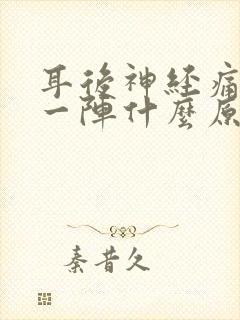 耳後神経痛
一陣什麼原
秦昔久